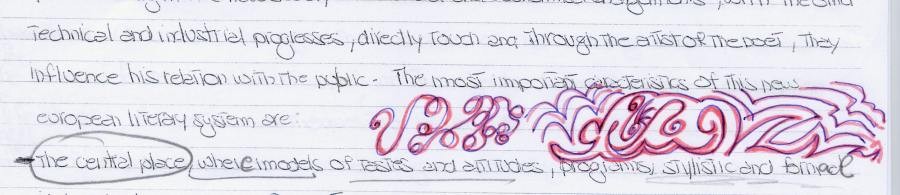 technical and industrial proglesses, directly touch and through the artist or the poet, they
influence his relation with the public. The most important caracteristics of this new
european literary system are:
-The central place where models of tastes and attitudes, programs, stylistic and formal